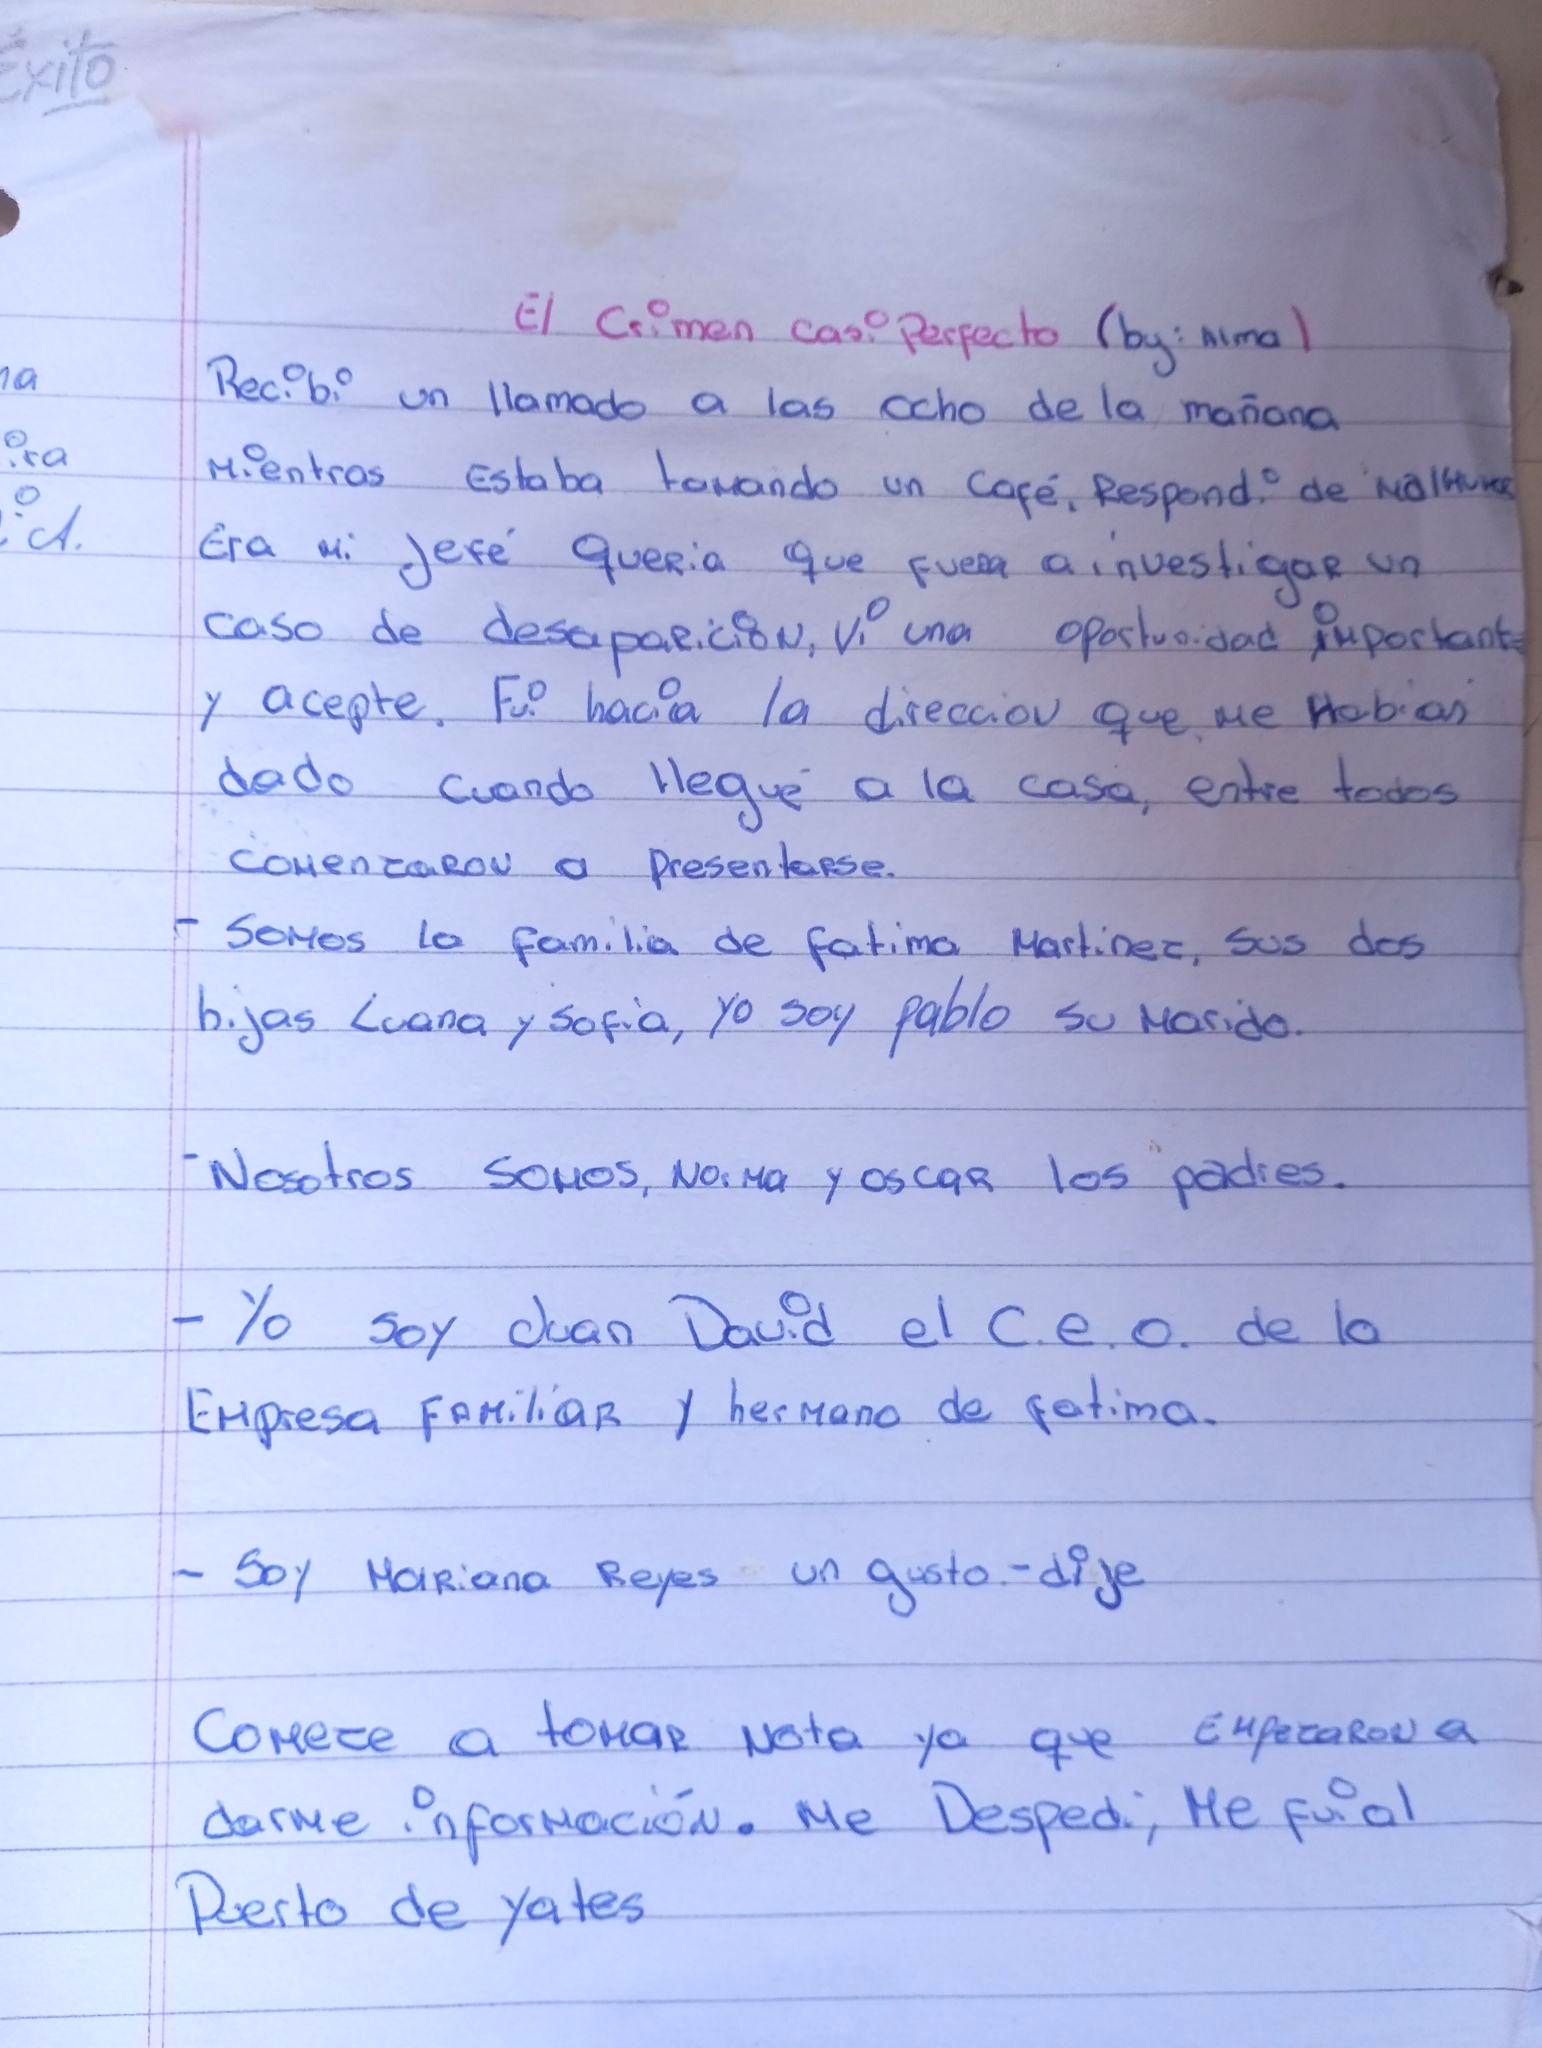 Éxito
El Crimen casi Perfecto (by: Alma)
Recibi un llamado a las ocho de la mañana
Mientras Estaba tomando un Café. Respondi de MalHumor
Era mi Jefé queria que fuera a investigar un
caso de desaparición, vi una oportunidad importante
y acepte. Fui hacia la direccion que me Habian
dado cuando llegué a la casa, entre todos
comenzaron a presentarse.
- Somos la familia de fatima Martinez, sus dos
hijas Luana y Sofia, yo soy pablo su Marido.
- Nosotros somos, Norma y oscar los padres.
- Yo soy Juan David el C.e.o. de la
Empresa Familiar y hermano de fatima.
- Soy Mariana Reyes un gusto.-dije
Comeze a tomar Nota ya que Empezaron a
darme información. Me Despedi, Me fui al
Puerto de yates